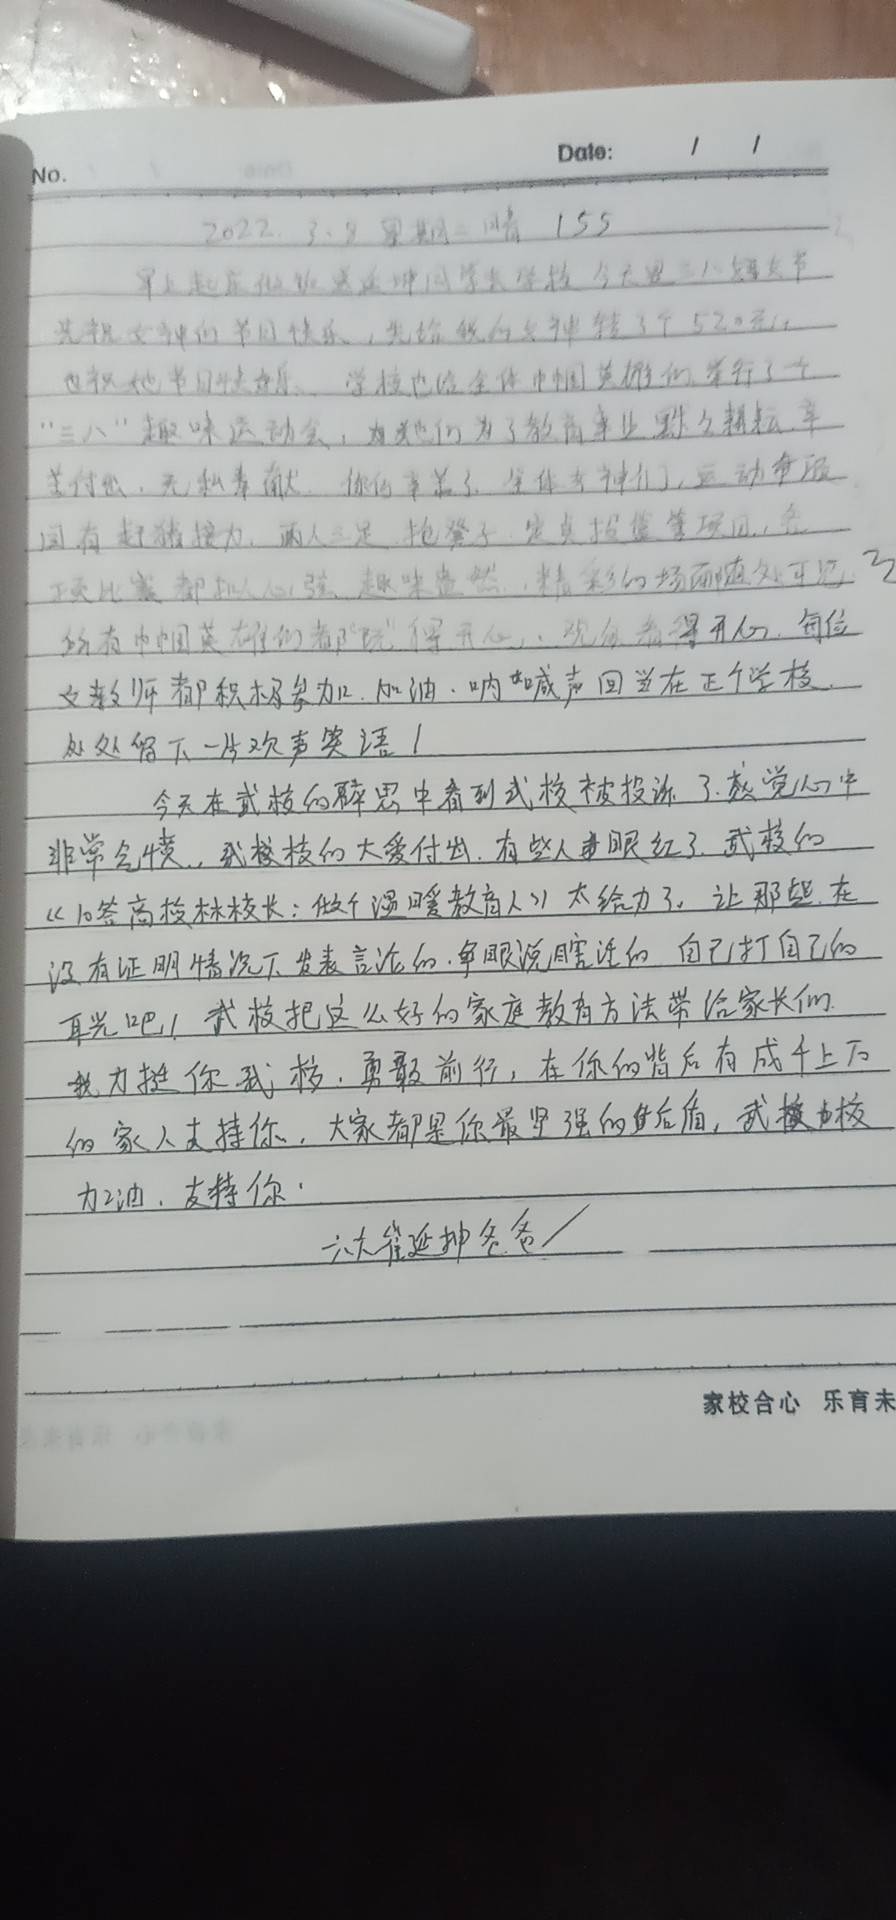 No. Date: / /
2022.3.8 星期二 晴 155
早上起床做饭送延坤同学去学校 今天是三八妇女节
先祝女神们节日快乐,先给我的女神转了个520元,
也祝她节日快乐、学校也给全体巾帼英雄们举行了个
"三八"趣味运动会,她们为了教育事业默久耕耘.辛
苦付出.无私奉献.你们辛苦了.全体女神们,运动会
间有赶猪接力.两人三足.抢凳子.定点投篮等项目,
项比赛都扣人心弦.趣味盎然.精彩的场面随处可见.
所有巾帼英雄们都"玩"得开心、观众看得开心.每位
女教师都积极参加.加油.呐喊声回当在正个学校.
处处留下一片欢声笑语!
今天在武校的群思中看到武校被投诉了.感觉心中
非常气愤.武校校的大爱付出.有些人眼红了.武校的
《10答高校林校长:做个温暖教育人》太给力了.让那些在
没有证明情况下发表言论的.争眼说瞎话的 自己打自己的
耳光吧!武校把这么好的家庭教育方法带给家长们
我力挺你武校.勇敢前行,在你的背后有成千上万
的家人支持你.大家都是你最坚强的后盾,武校
加油.支持你.
六大崔延坤爸爸
家校合心 乐育未